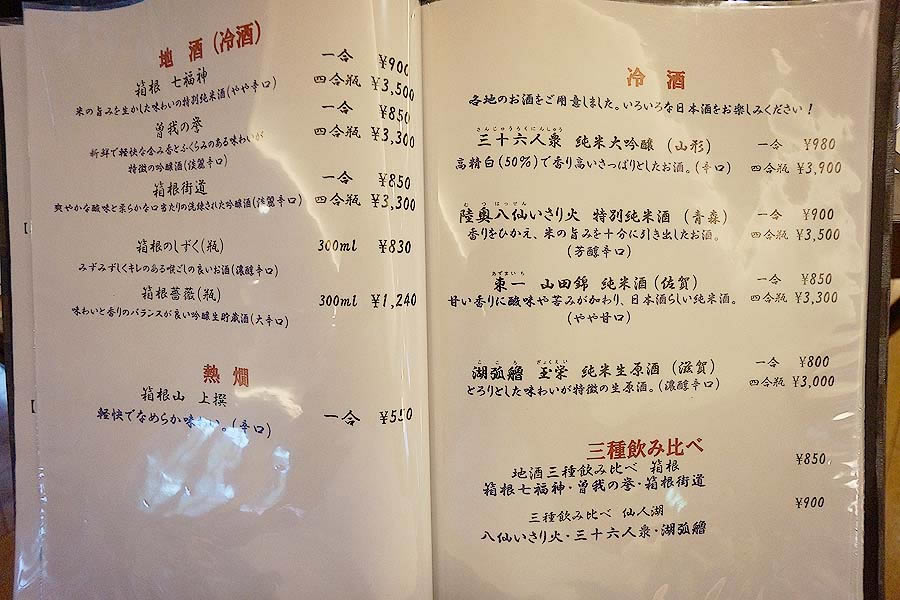 地 酒（冷酒）
箱根 七福神 一合 ¥900
米の旨みを生かした味わいの特別純米酒（やや辛口） 四合瓶 ¥3,500
曽我の誉 一合 ¥850
新鮮で軽快な含み香とふくらみのある味わいが 四合瓶 ¥3,300
特徴の吟醸酒（淡麗辛口）
箱根街道 一合 ¥850
爽やかな酸味と柔らかな口当たりの洗練された吟醸酒（淡麗辛口） 四合瓶 ¥3,300
箱根のしずく（瓶） 300ml ¥830
みずみずしくキレのある喉ごしの良いお酒（濃醇辛口）
箱根薔薇（瓶） 300ml ¥1,240
味わいと香りのバランスが良い吟醸生貯蔵酒（大辛口）
熱 燗
箱根山 上撰
軽快でなめらか味わい。（辛口） 一合 ¥550
冷 酒
各地のお酒をご用意しました。いろいろな日本酒をお楽しみください！
さんじゅうろくにんしゅう
三十六人衆 純米大吟醸 （山形） 一合 ¥980
高精白（50%）で香り高いさっぱりとしたお酒。（辛口） 四合瓶 ¥3,900
むつはっせん
陸奥八仙いさり火 特別純米酒 （青森） 一合 ¥900
香りをひかえ、米の旨みを十分に引き出したお酒。 四合瓶 ¥3,500
（芳醇辛口）
あずまいち
東一 山田錦 純米酒（佐賀） 一合 ¥850
甘い香りに酸味や苦みが加わり、日本酒らしい純米酒。 四合瓶 ¥3,300
（やや甘口）
こころ ぎょくえい
湖弧艪 玉栄 純米生原酒（滋賀） 一合 ¥800
とろりとした味わいが特徴の生原酒。（濃醇辛口） 四合瓶 ¥3,000
三種飲み比べ
地酒三種飲み比べ 箱根 ¥850
箱根七福神・曽我の誉・箱根街道
三種飲み比べ 仙人湖 ¥900
八仙いさり火・三十六人衆・湖弧艪